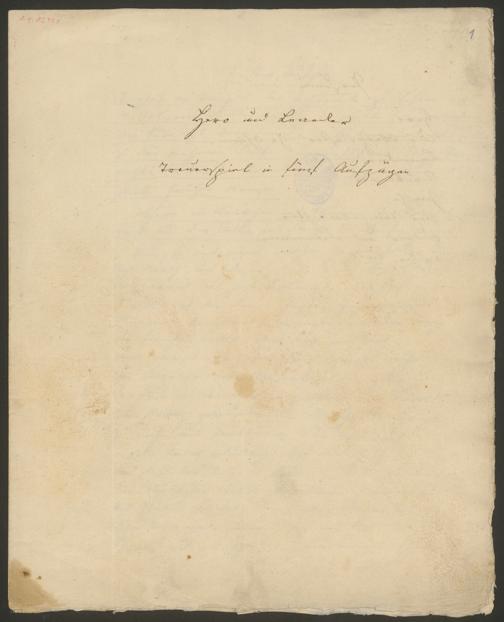 1
Hero und Leander
Trauerspiel in fünf Aufzügen